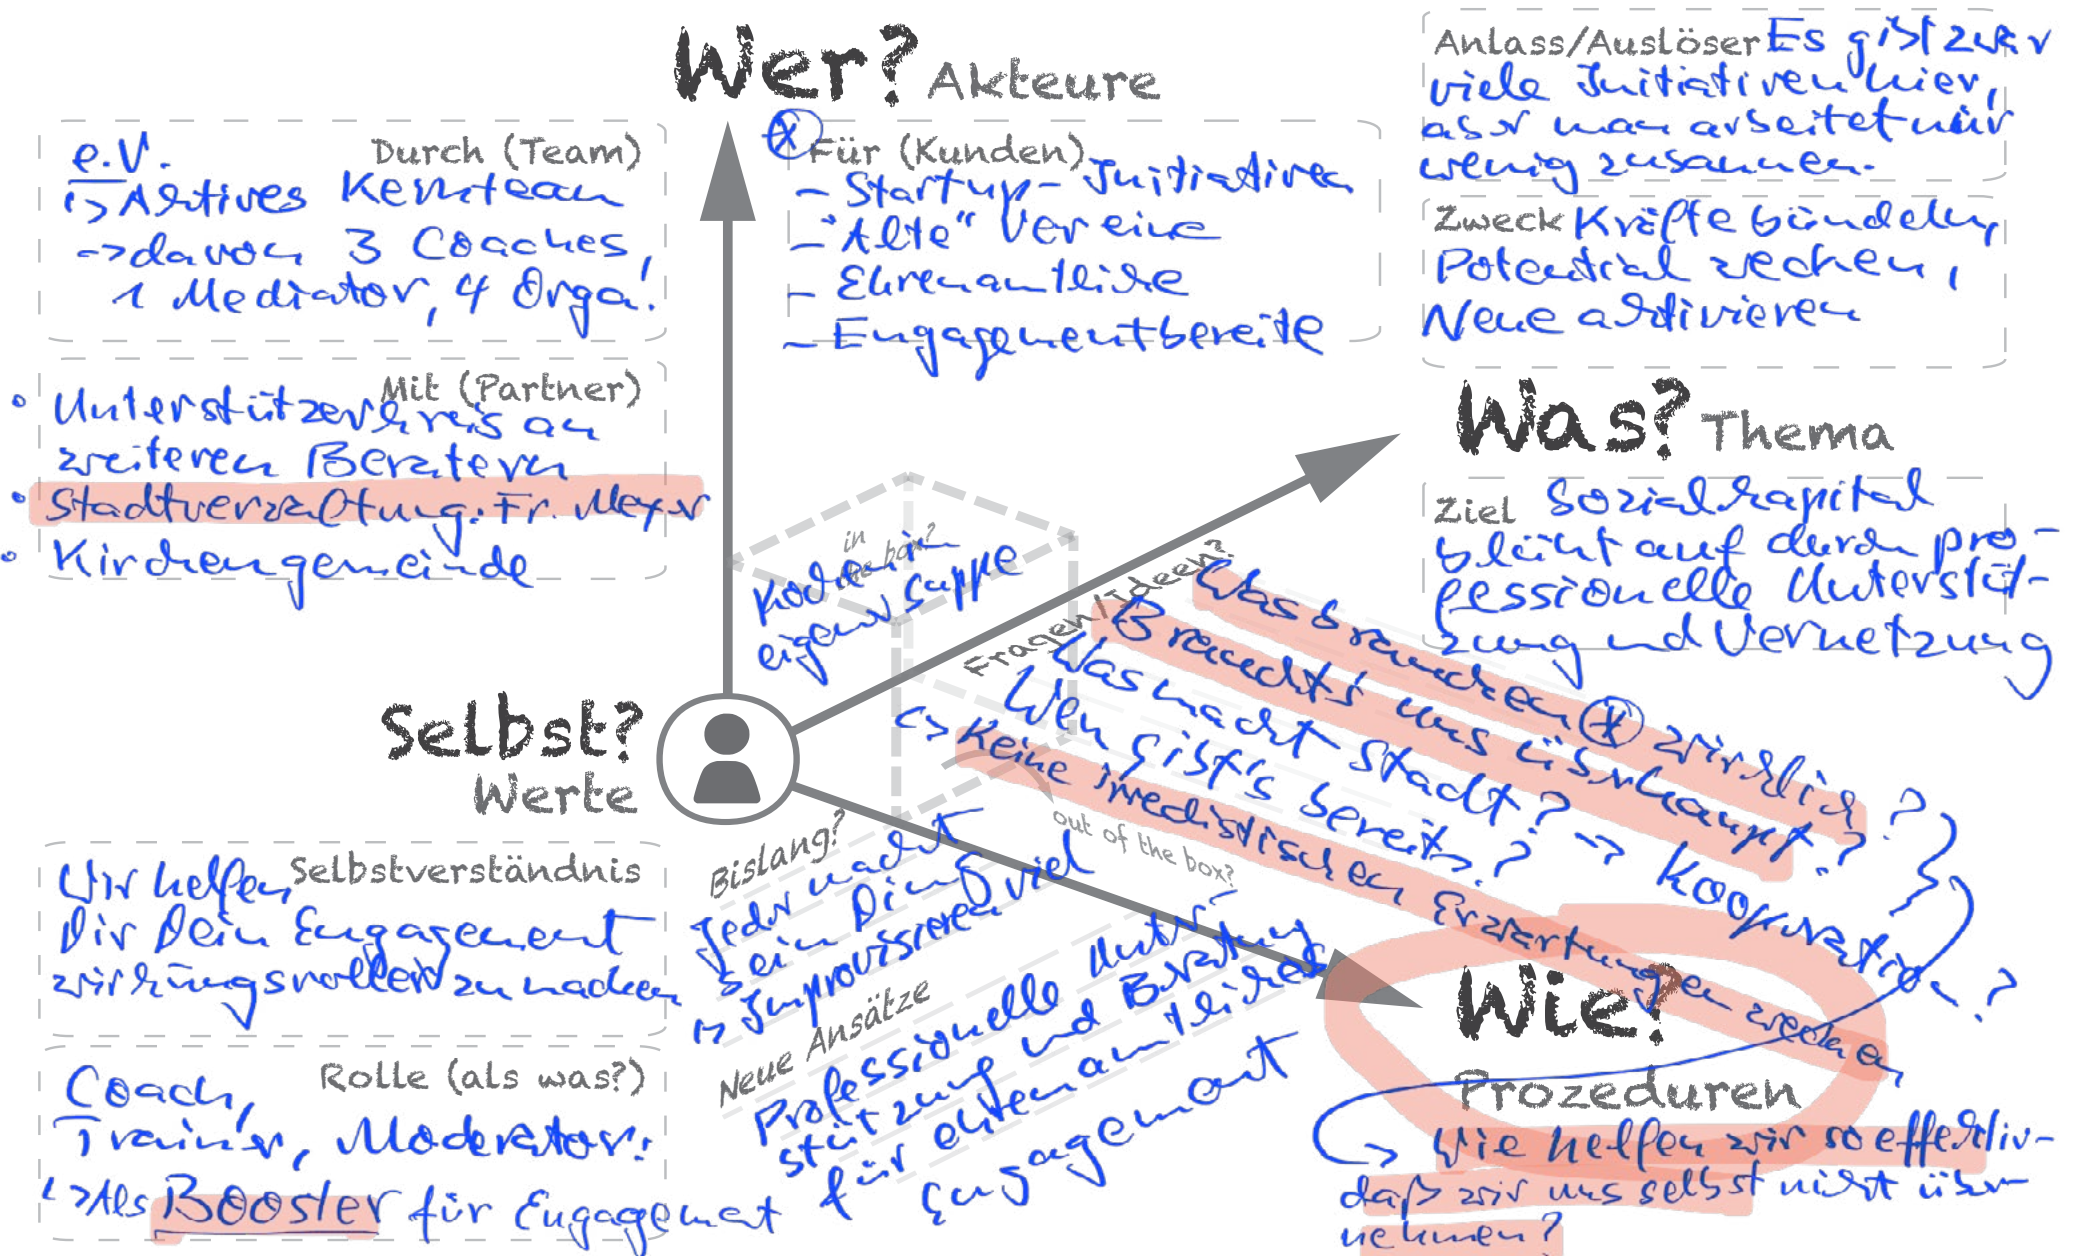 Wer? Akteure
e.V. Durch (Team)
↳ Aktives Kernteam
-> davon 3 Coaches,
1 Mediator, 4 Orga!
Mit (Partner)
• Unterstützerkreis an
weiteren Beratern
• Stadtverwaltung: Fr. Meyer
• Kirchengemeinde
* Für (Kunden)
- Startup-Initiativen
- "Alte" Vereine
- Ehrenamtliche
- Engagementbereite
Anlass/Auslöser Es gibt zwar
viele Initiativen hier,
aber man arbeitet nur
wenig zusammen.
Zweck Kräfte bündeln,
Potential wecken,
Neue aktivieren
Was? Thema
Ziel Sozialkapital
blüht auf durch pro-
fessionelle Unterstüt-
zung und Vernetzung
in
the box?
Kochen in
eigener Suppe
Fragen/Ideen?
Was brauchen * wirklich?
Braucht's uns überhaupt?
Was macht Stadt? -> Kooperation?
Wen gibt's bereits?
↳ Keine unrealistischen Erwartungen wecken
out of the box?
Selbst?
Werte
Selbstverständnis
Wir helfen
Dir Dein Engagement
wirkungsvoller zu machen
Rolle (als was?)
Coach,
Trainer, Moderator!
↳ Als Booster für Engagement
Bislang?
Jeder macht
sein Ding
↳ Improvisieren viel
Neue Ansätze
Professionelle Unter-
stützung und Beratung
für ehrenamtliches
Engagement
Wie?
Prozeduren
-> Wie helfen wir so effektiv-
daß wir uns selbst nicht über-
nehmen?